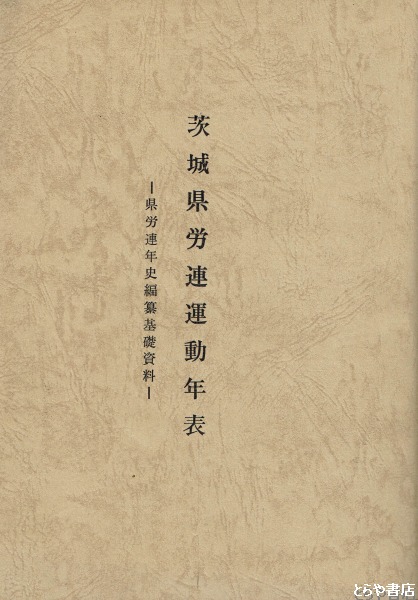 茨城県労連運動年表
ー県労連年史編纂基礎資料ー
とらや書店